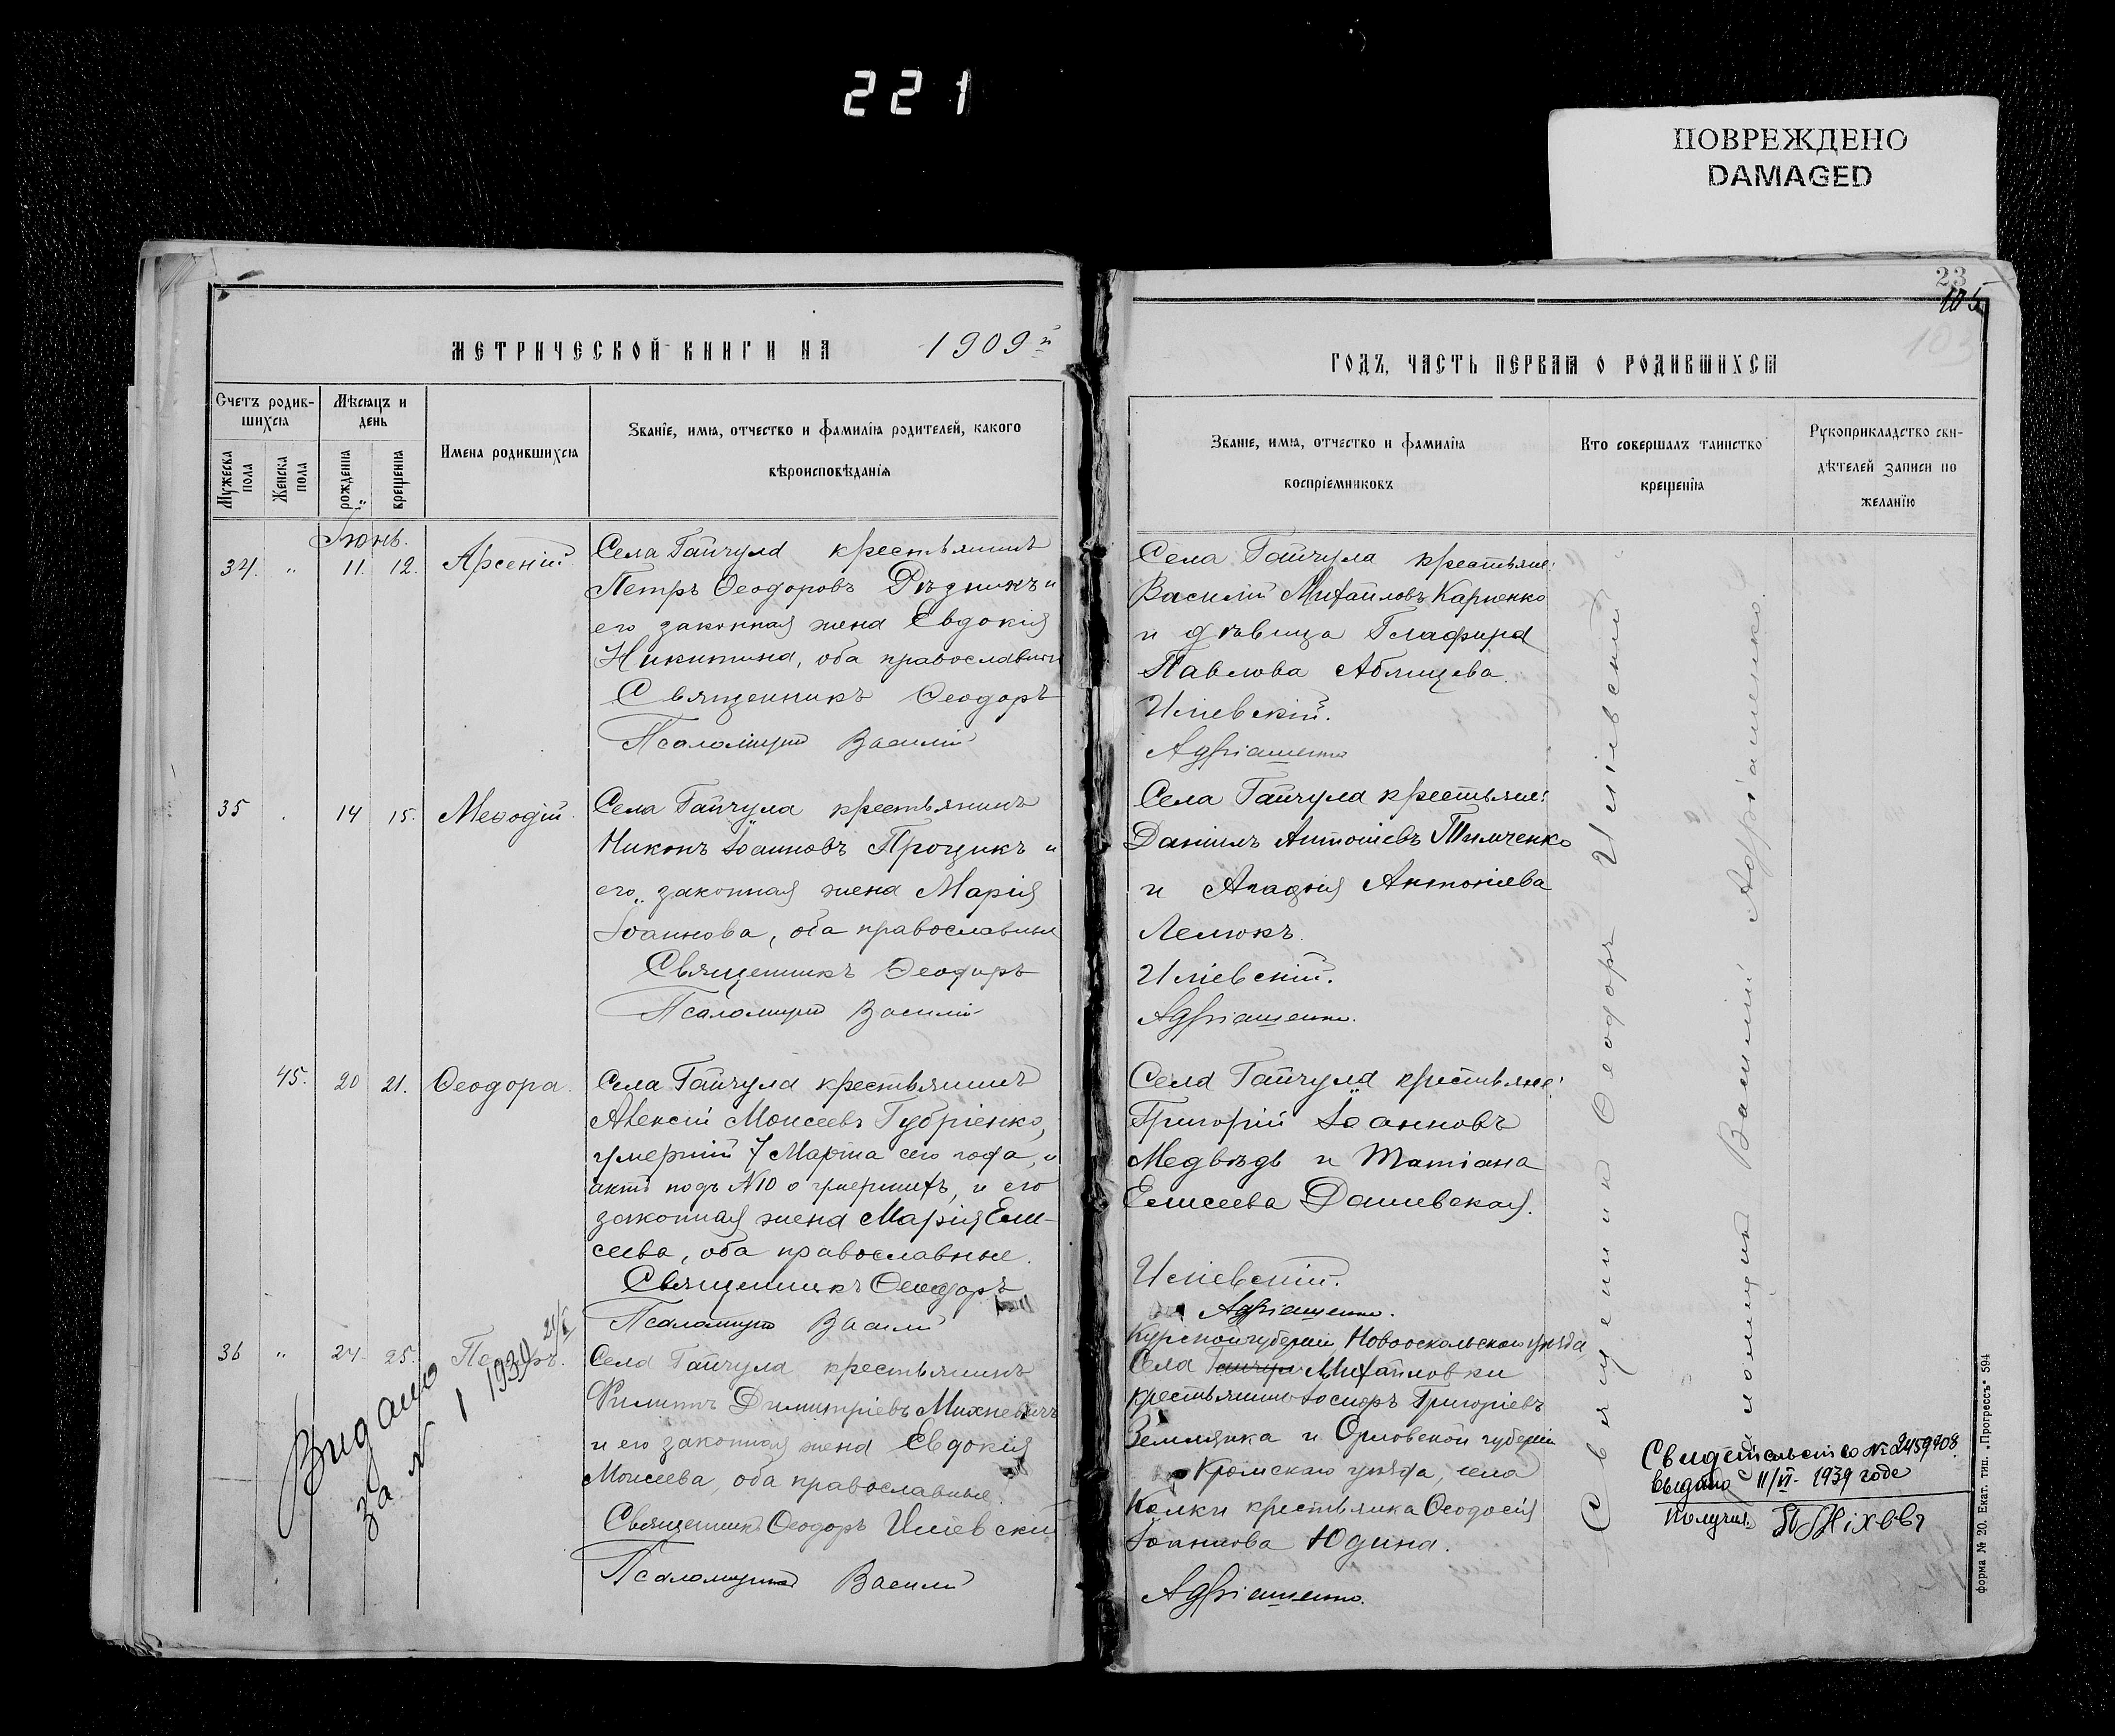 221
ПОВРЕЖДЕНО
DAMAGED
МЕТРИЧЕСКОЙ КНИГИ НА 1909й
Счетъ родив-
шихся
Мужеска
пола
Женска
пола
Мѣсяцъ и
день
рожденія
крещенія
Имена родившихся
Званіе, имя, отчество и фамилія родителей, какого
вѣроисповѣданія
Іюнь.
34. " 11. 12. Арсеній
Села Гайчула крестьянинъ
Петръ Ѳеодоровъ Рѣзникъ и
его законная жена Евдокія
Никитина, оба православные
Священникъ Ѳеодоръ
Псаломщикъ Василій
35 14 15. Меѳодій
Села Гайчула крестьянинъ
Никонъ Іоанновъ Процикъ и
его законная жена Марія
Іоаннова, оба православные
Священникъ Ѳеодоръ
Псаломщикъ Василій
45. 20 21. Ѳеодора.
Села Гайчула крестьянинъ
Алексій Моисеевъ Губріенко,
умершій 7 Марта сего года,
актъ подъ №10 о умершихъ, и его
законная жена Марія Ели-
сеева, оба православные.
Священникъ Ѳеодоръ
Псаломщикъ Василій
36 " 24 25. Петръ.
Села Гайчула крестьянинъ
Филиппъ Димитріевъ Михневичъ
и его законная жена Евдокія
Моисеева, оба православные.
Священникъ Ѳеодоръ Иліевскій
Псаломщикъ Василій
Видано
за № 1 1939 21/I
23
105
103
ГОДЪ, ЧАСТЬ ПЕРВАЯ О РОДИВШИХСЯ
Званіе, имя, отчество и фамилія
воспріемниковъ
Кто совершалъ таинство
крещенія
Рукоприкладство сви-
дѣтелей записи по
желанію
Села Гайчула крестьяне:
Василій Михайловъ Карпенко
и дѣвица Глафира
Павлова Аблицева.
Иліевскій.
Адріашенко
Села Гайчула крестьяне:
Даніилъ Антоніевъ Тимченко
и Агафія Антоніева
Лелюкъ.
Иліевскій.
Адріашенко.
Села Гайчула крестьяне:
Григорій Іоанновъ
Медвѣдь и Татіана
Елисеева Дашевская.
Иліевскій.
Адріашенко.
Курской губерніи, Новооскольскаго уѣзда,
Села Гайчула Михайловки
крестьянинъ Іосифъ Григоріевъ
Землянка и Орловской губерніи
Кромскаго уѣзда, села
Колки крестьянка Ѳеодосія
Іоаннова Юдина.
Адріашенко.
Священникъ Ѳеодоръ Иліевскій
Псаломщикъ Василій Адріашенко.
Свидетельство № 2459708
выдано 11/VI - 1939 года
Получил
форма № 20. Екат. тип. „Прогрессъ" 594